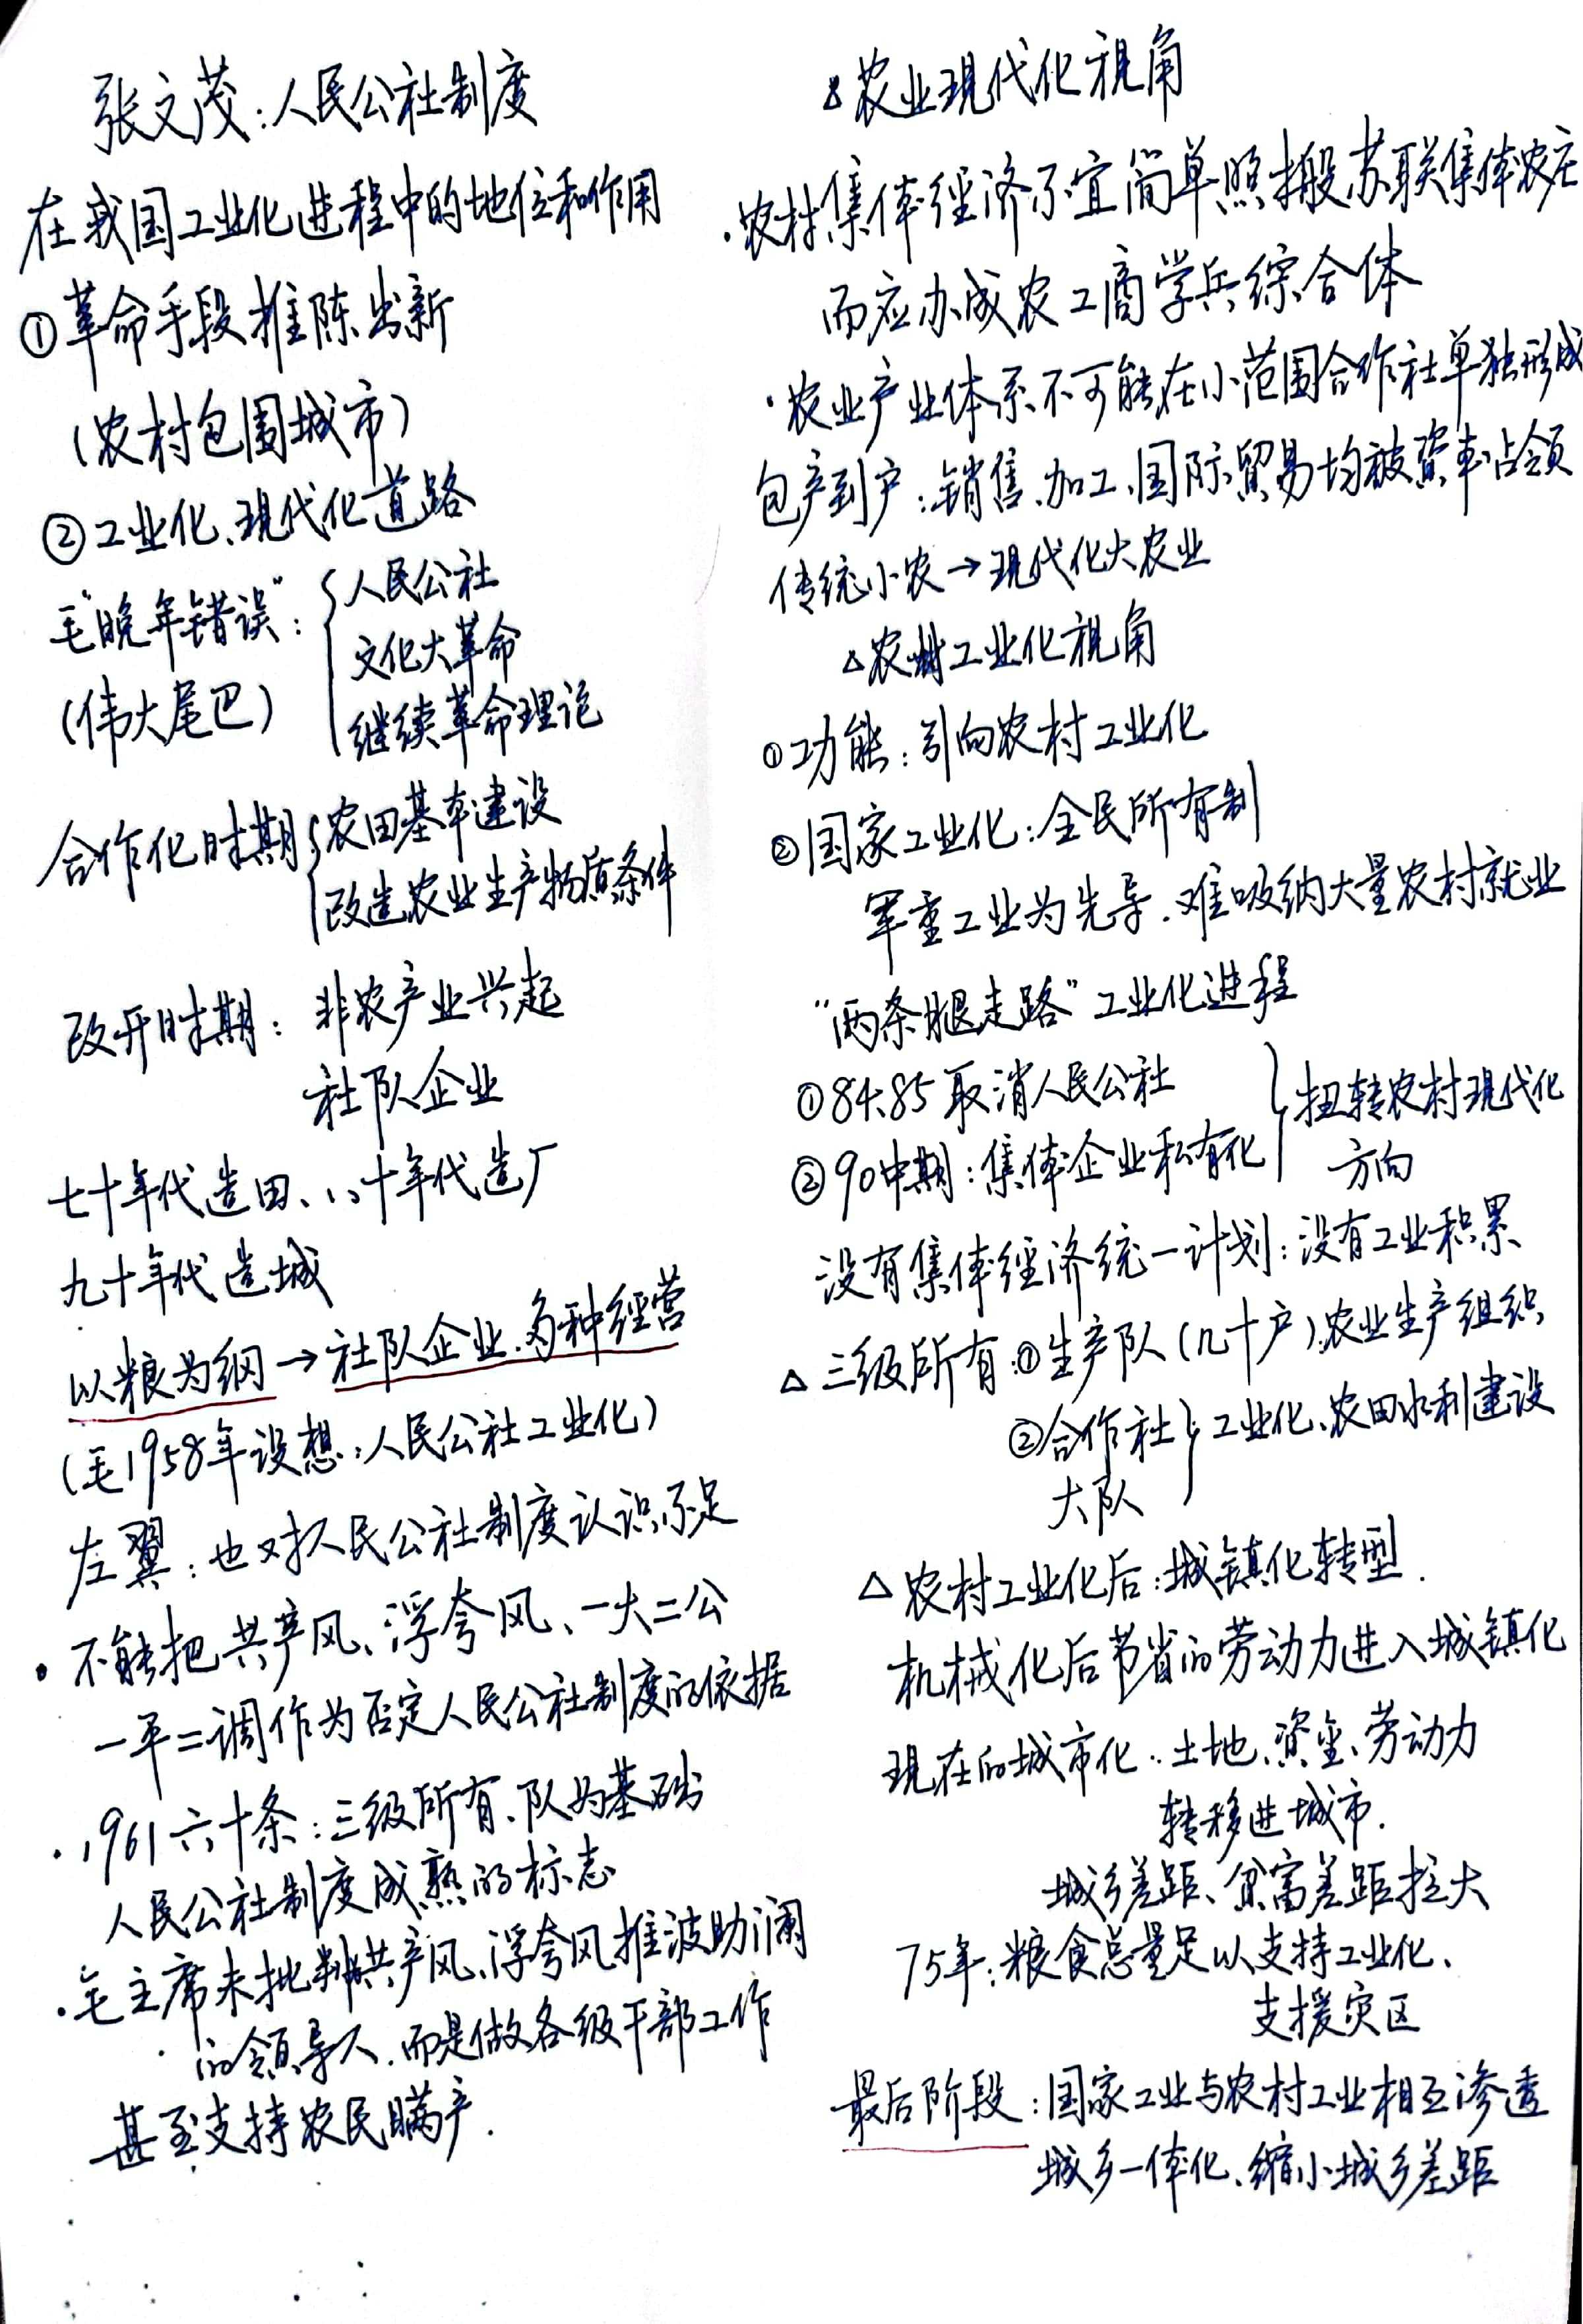 张文茂：人民公社制度
在我国工业化进程中的地位和作用
①革命手段推陈出新
（农村包围城市）
②工业化、现代化道路
毛“晚年错误”：{人民公社
文化大革命
(伟大尾巴)
继续革命理论
合作化时期{农田基本建设
改造农业生产物质条件
改开时期：非农产业兴起
社队企业
七十年代造田、八十年代造厂
九十年代造城
以粮为纲→社队企业.多种经营
(毛1958年设想：人民公社工业化)
左翼：也对人民公社制度认识不足
·不能把共产风、浮夸风、一大二公
一平二调作为否定人民公社制度的依据
·1961六十条：三级所有、队为基础
人民公社制度成熟的标志
·毛主席未批判共产风、浮夸风推波助澜
的领导人.而是做各级干部工作
甚至支持农民瞒产.
△农业现代化视角
·农村集体经济不宜简单照搬苏联集体农庄
而应办成农工商学兵综合体
·农业产业体系不可能在小范围合作社单独形成
包产到户：销售、加工、国际贸易均被资本占领
传统小农→现代化大农业
△农村工业化视角
①功能：引向农村工业化
②国家工业化：全民所有制
军重工业为先导.难吸纳大量农村就业
“两条腿走路”工业化进程
①84.85取消人民公社
②90中期：集体企业私有化
}扭转农村现代化
方向
没有集体经济统一计划：没有工业积累
△三级所有：①生产队(几十户)：农业生产组织
②合作社}工业化、农田水利建设
大队
△农村工业化后：城镇化转型.
机械化后节省的劳动力进入城镇化
现在的城市化：土地、资金、劳动力
转移进城市.
城乡差距、贫富差距拉大
75年：粮食总量足以支持工业化、
支援灾区
最后阶段：国家工业与农村工业相互渗透
城乡一体化、缩小城乡差距